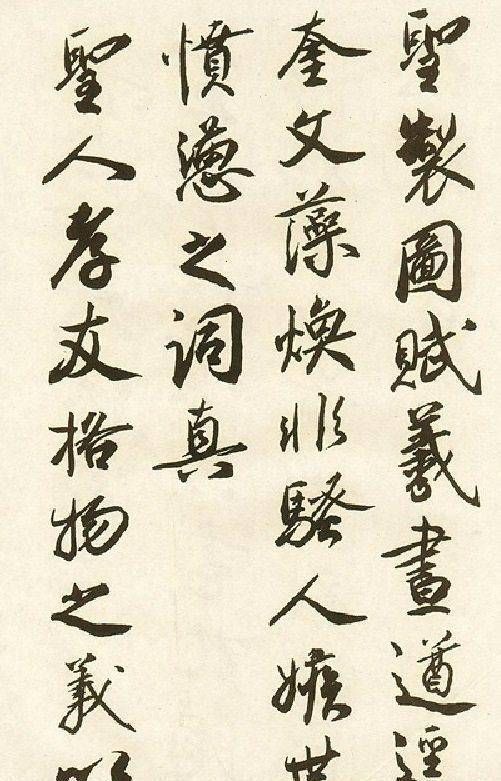 聖製圖賦羲畫遒逕
奎文藻煥非騷人嫉世
憤懣之詞真
聖人孝友格物之義